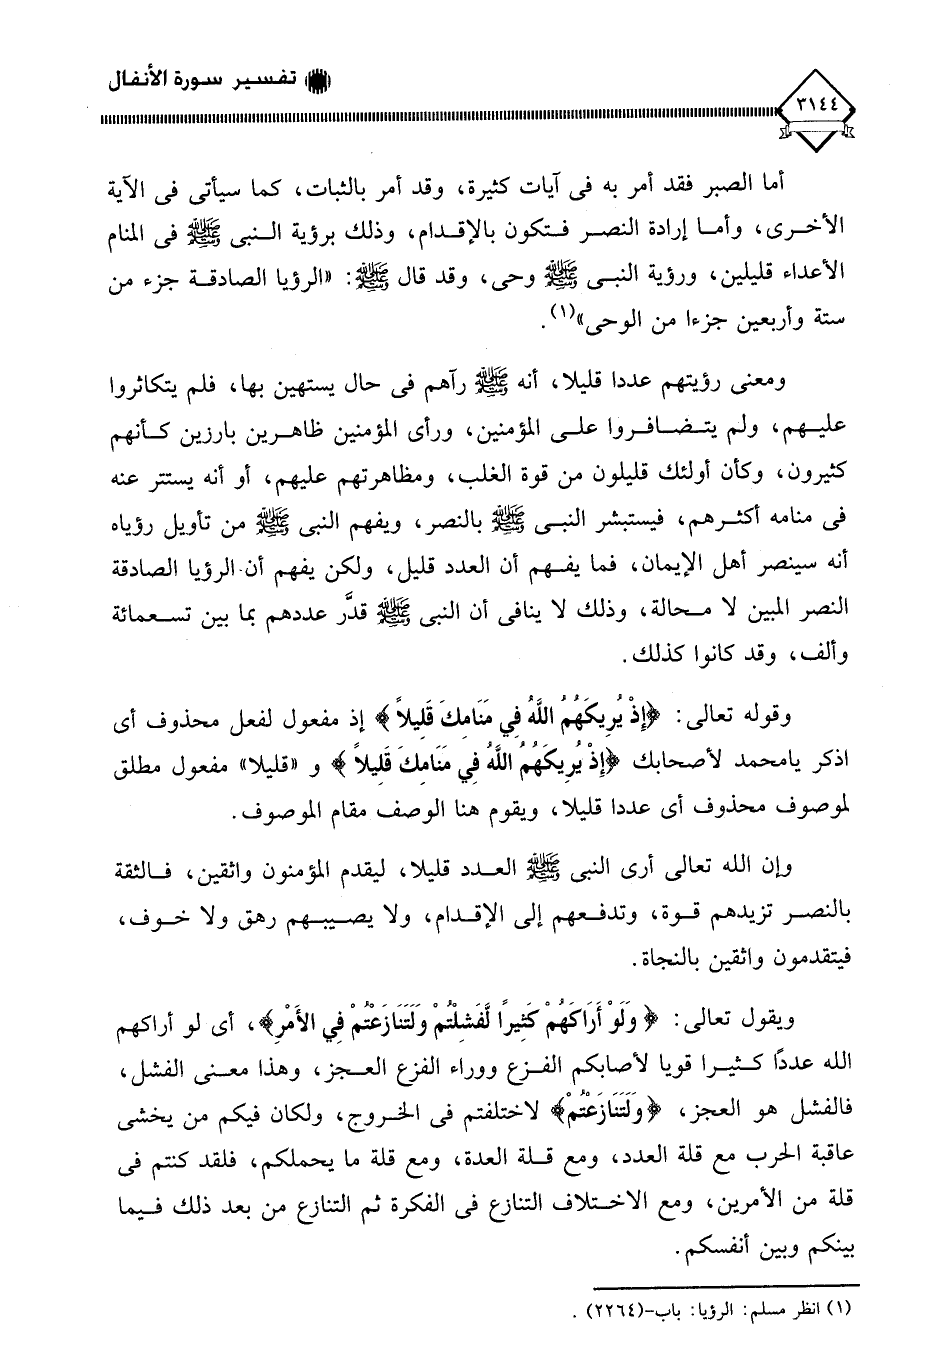 تفسير سورة الأنفال
٣١٤٤
أما الصبر فقد أمر به فى آيات كثيرة، وقد أمر بالثبات، كما سيأتى فى الآية
الأخرى، وأما إرادة النصر فتكون بالإقدام، وذلك برؤية النبى ﷺ فى المنام
الأعداء قليلين، ورؤية النبى ﷺ وحى، وقد قال ﷺ: «الرؤيا الصادقة جزء من
ستة وأربعين جزءا من الوحى»(١).
ومعنى رؤيتهم عددا قليلا، أنه ﷺ رآهم فى حال يستهين بها، فلم يتكاثروا
عليهم، ولم يتضافروا على المؤمنين، ورأى المؤمنين ظاهرين بارزين كأنهم
كثيرون، وكأن أولئك قليلون من قوة الغلب، ومظاهرتهم عليهم، أو أنه يستتر عنه
فى منامه أكثرهم، فيستبشر النبى ﷺ بالنصر، ويفهم النبى ﷺ من تأويل رؤياه
أنه سينصر أهل الإيمان، فما يفهم أن العدد قليل، ولكن يفهم أن الرؤيا الصادقة
النصر المبين لا محالة، وذلك لا ينافى أن النبى ﷺ قدَّر عددهم بما بين تسعمائة
وألف، وقد كانوا كذلك.
وقوله تعالى: ﴿إِذْ يُرِيكَهُمُ اللَّهُ فِي مَنَامِكَ قَلِيلاً﴾ إذ مفعول لفعل محذوف أى
اذكر يامحمد لأصحابك ﴿إِذْ يُرِيكَهُمُ اللَّهُ فِي مَنَامِكَ قَلِيلاً﴾ و «قليلا» مفعول مطلق
لموصوف محذوف أى عددا قليلا، ويقوم هنا الوصف مقام الموصوف.
وإن الله تعالى أرى النبى ﷺ العدد قليلا، ليقدم المؤمنون واثقين، فالثقة
بالنصر تزيدهم قوة، وتدفعهم إلى الإقدام، ولا يصيبهم رهق ولا خوف،
فيتقدمون واثقين بالنجاة.
ويقول تعالى: ﴿وَلَوْ أَرَاكَهُمْ كَثِيراً لَّفَشِلْتُمْ وَلَتَنَازَعْتُمْ فِي الأَمْرِ﴾، أى لو أراكهم
الله عددًا كثيرا قويا لأصابكم الفزع ووراء الفزع العجز، وهذا معنى الفشل،
فالفشل هو العجز، ﴿وَلَتَنَازَعْتُمْ﴾ لاختلفتم فى الخروج، ولكان فيكم من يخشى
عاقبة الحرب مع قلة العدد، ومع قلة العدة، ومع قلة ما يحملكم، فلقد كنتم فى
قلة من الأمرين، ومع الاختلاف التنازع فى الفكرة ثم التنازع من بعد ذلك فيما
بينكم وبين أنفسكم.
(١) انظر مسلم: الرؤيا: باب-(٢٢٦٤) .